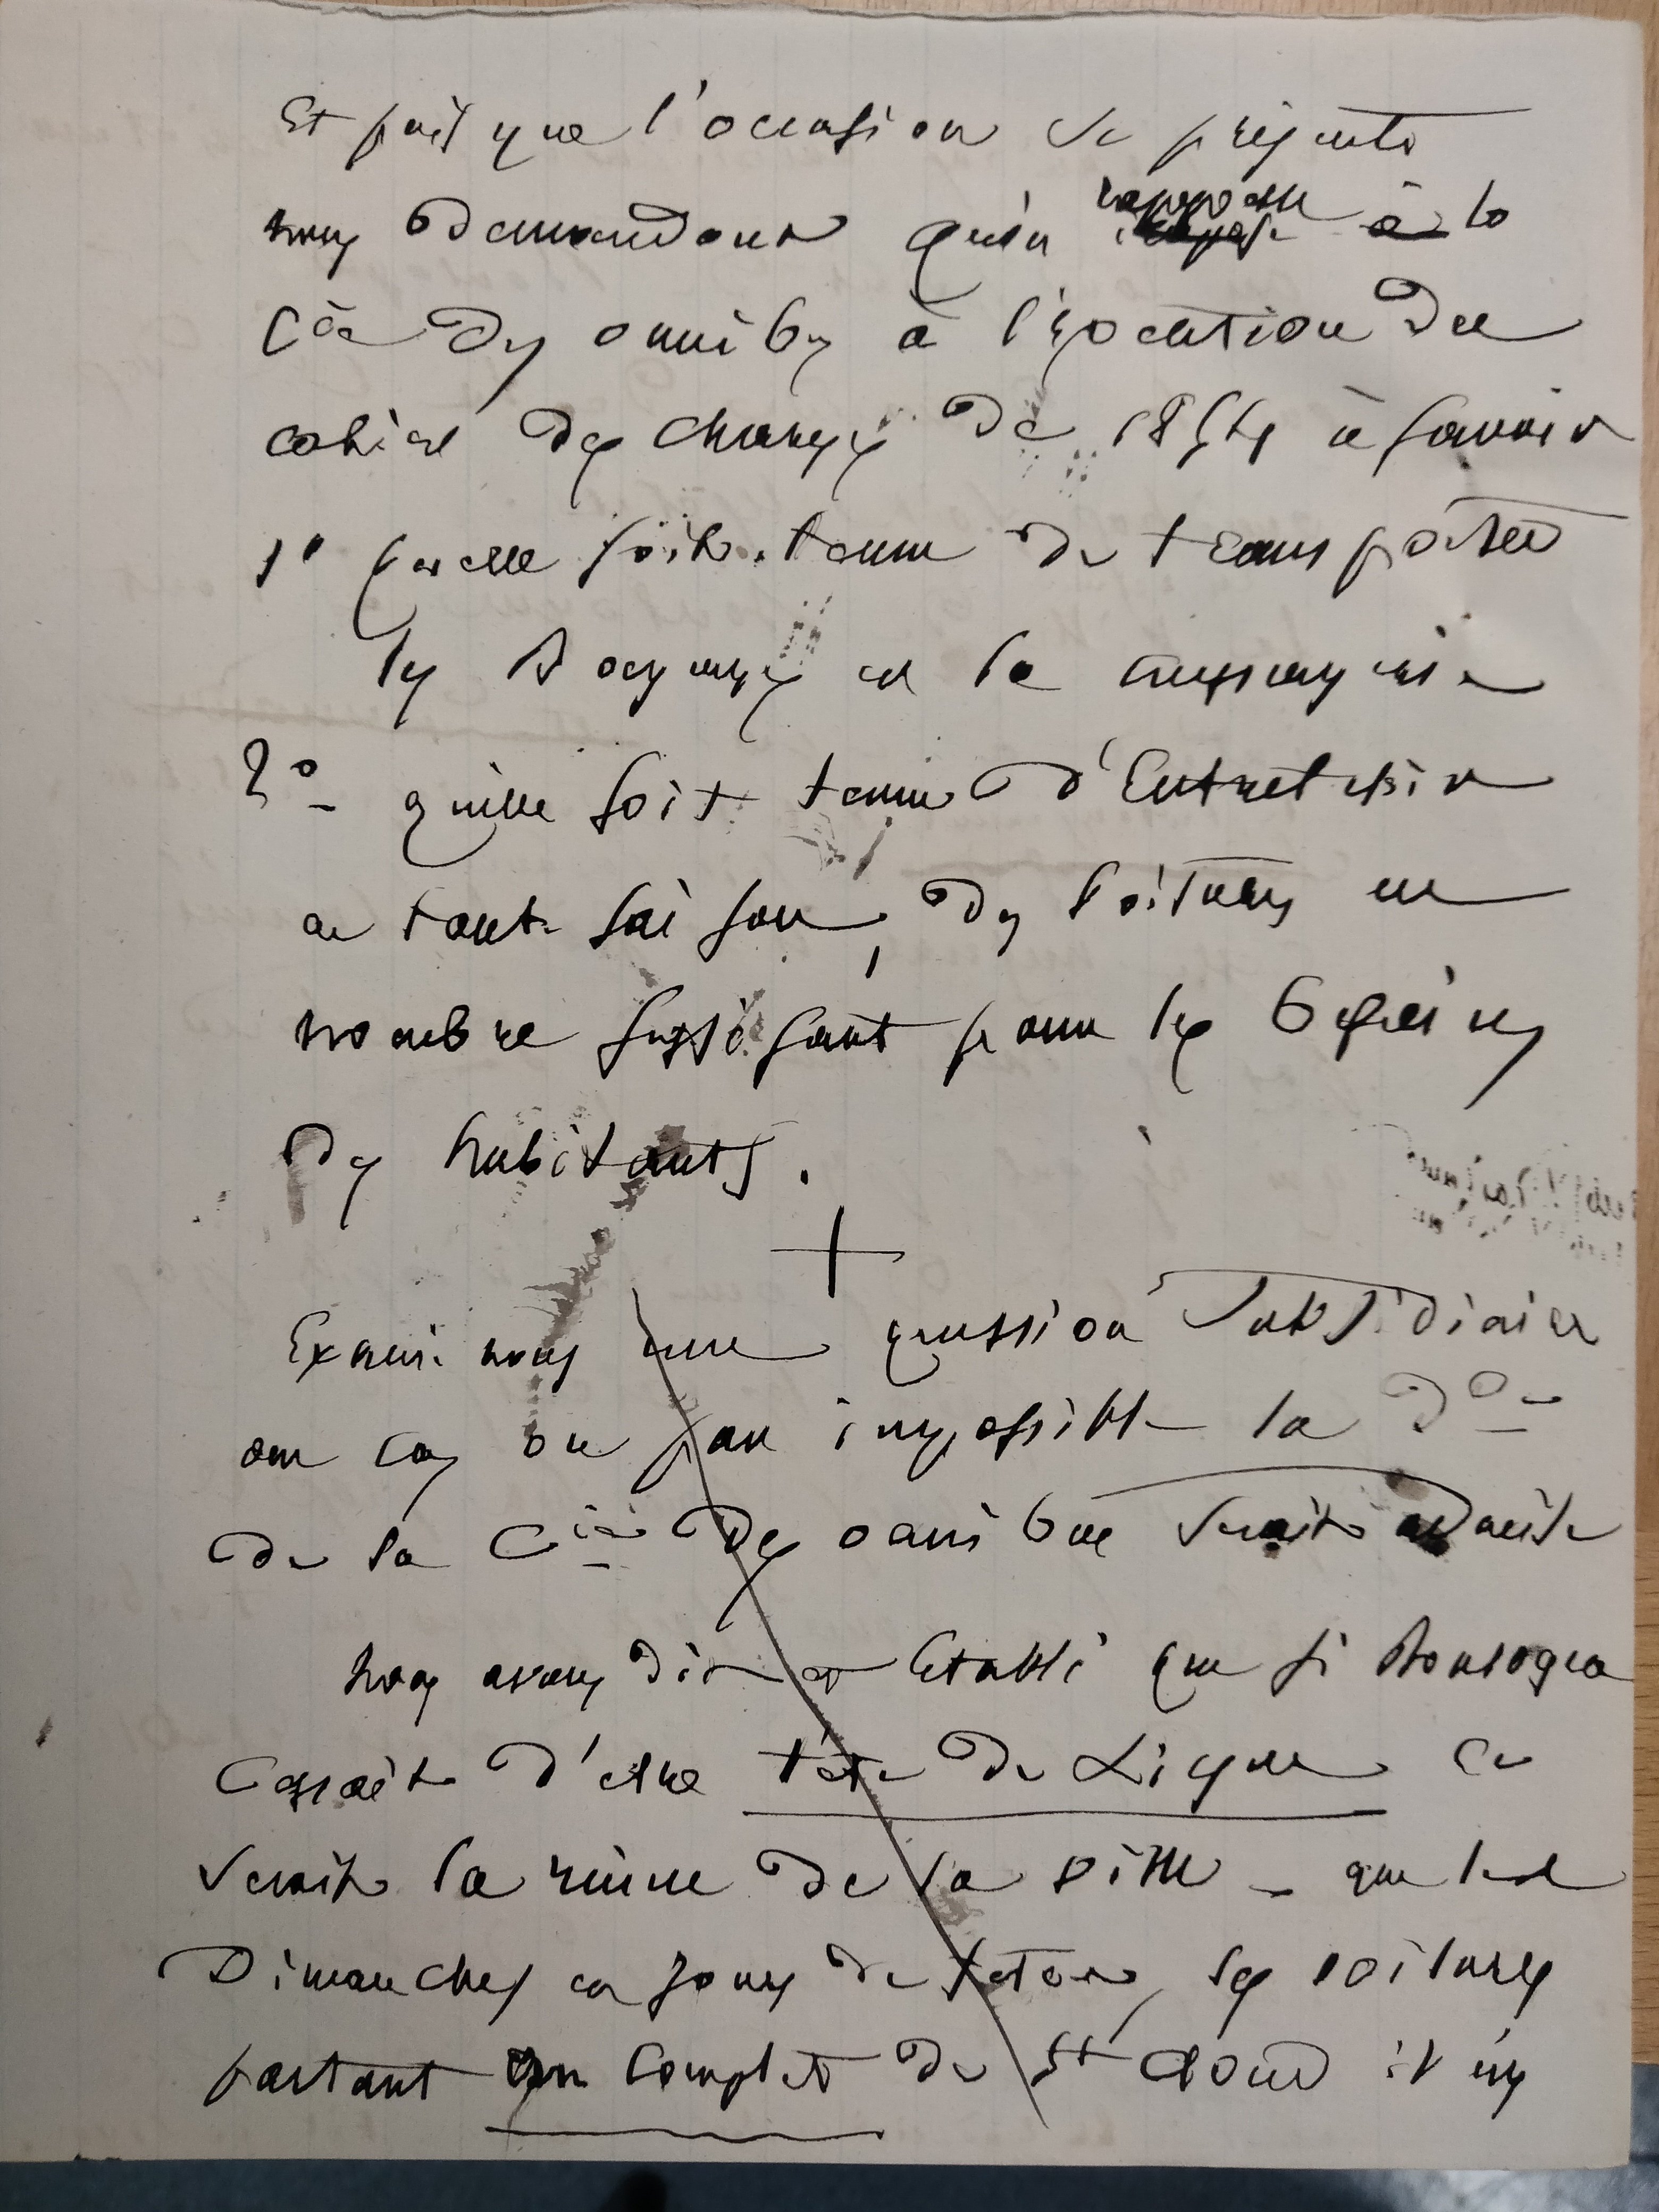 Et puisque l'occasion se présente
nous demandons qu'on rappelle à la
Cie des omnibus à l'exécution du
cahier des charges de 1854 à savoir
1° qu'elle soit tenue de transporter
les bagages et la messagerie
2° qu'elle soit tenue d'Entretenir
en toute saison, des voitures en
nombre suffisant pour les besoins
des habitants.
+
Examinons une question Subsidiaire
au cas ou par impossible la Dde
de la Cie des omnibus serait admise
nous avons dit et Etabli que si Boulogne
cessait d'etre tête de Ligne ce
serait la ruine de la ville - que les
Dimanches et jours de fetes, les voitures
partant au complet de St Cloud il n'y